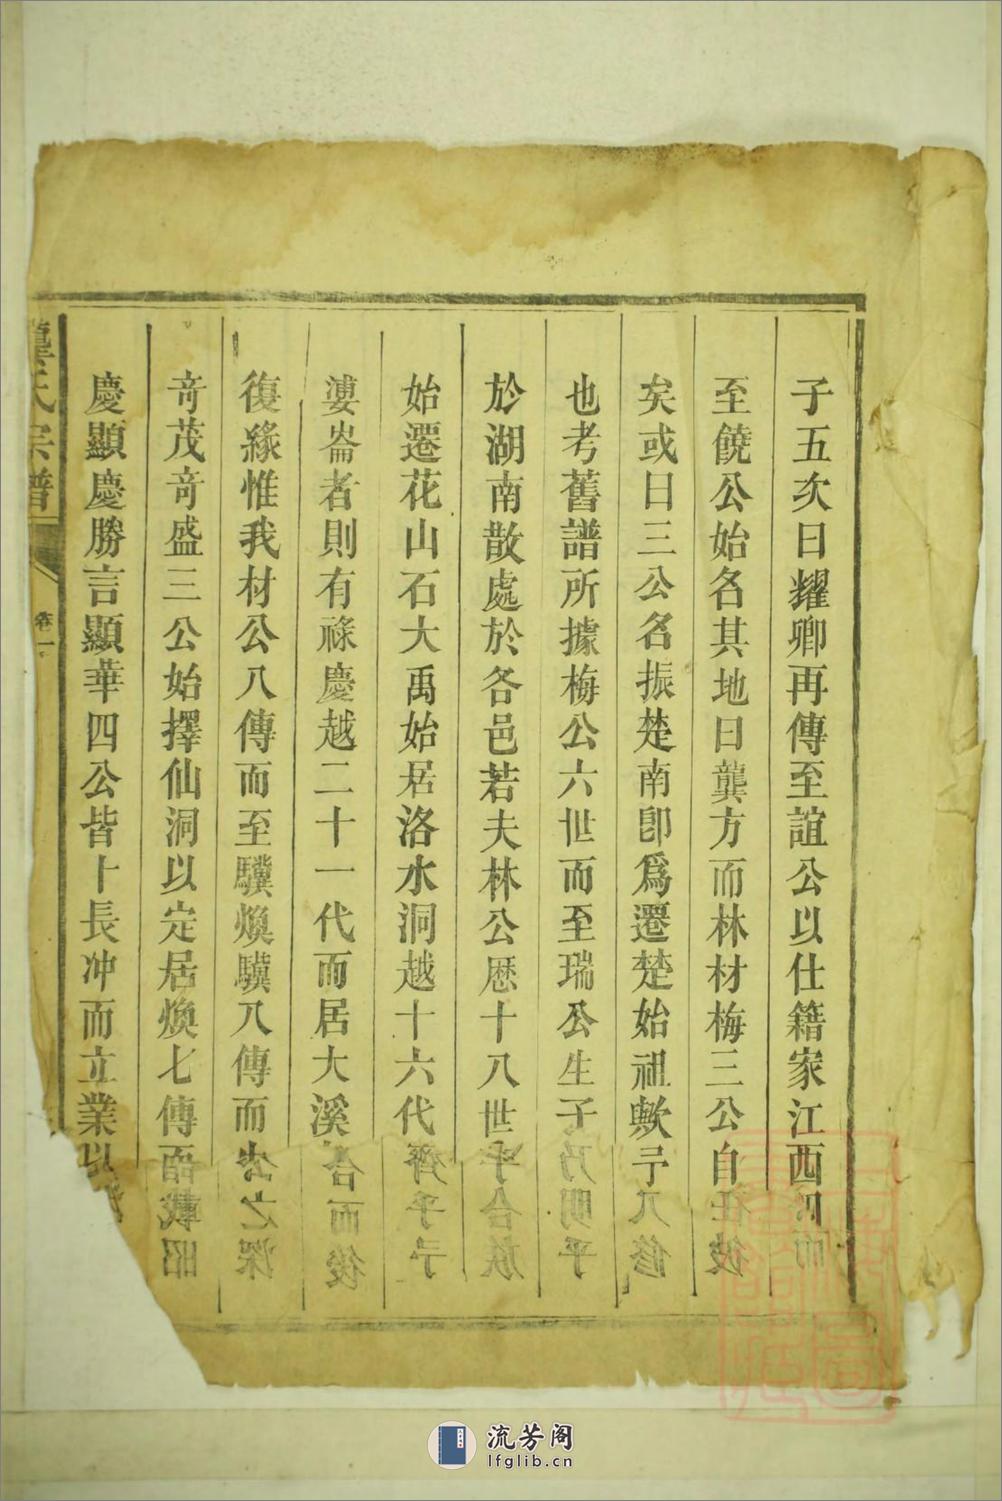 子五次曰耀卿再傳至誼公以仕籍家江西
至饒公始名其地曰龔方而林材梅三公自
矣或曰三公名振楚南卽爲遷楚始祖歟予
也考舊譜所據梅公六世而至瑞公生子
於湖南散處於各邑若夫林公厯十八世
始遷花山石大禹始居洛水洞越十六代
婁崙者則有祿慶越二十一代而居大溪
復緣惟我材公八傳而至驥煥驥八傳而
奇茂奇盛三公始擇仙洞以定居煥七傳
慶顯慶勝言顯華四公皆卜長冲而立業以
龔氏宗譜
卷一
流芳阁
lfglib.cn